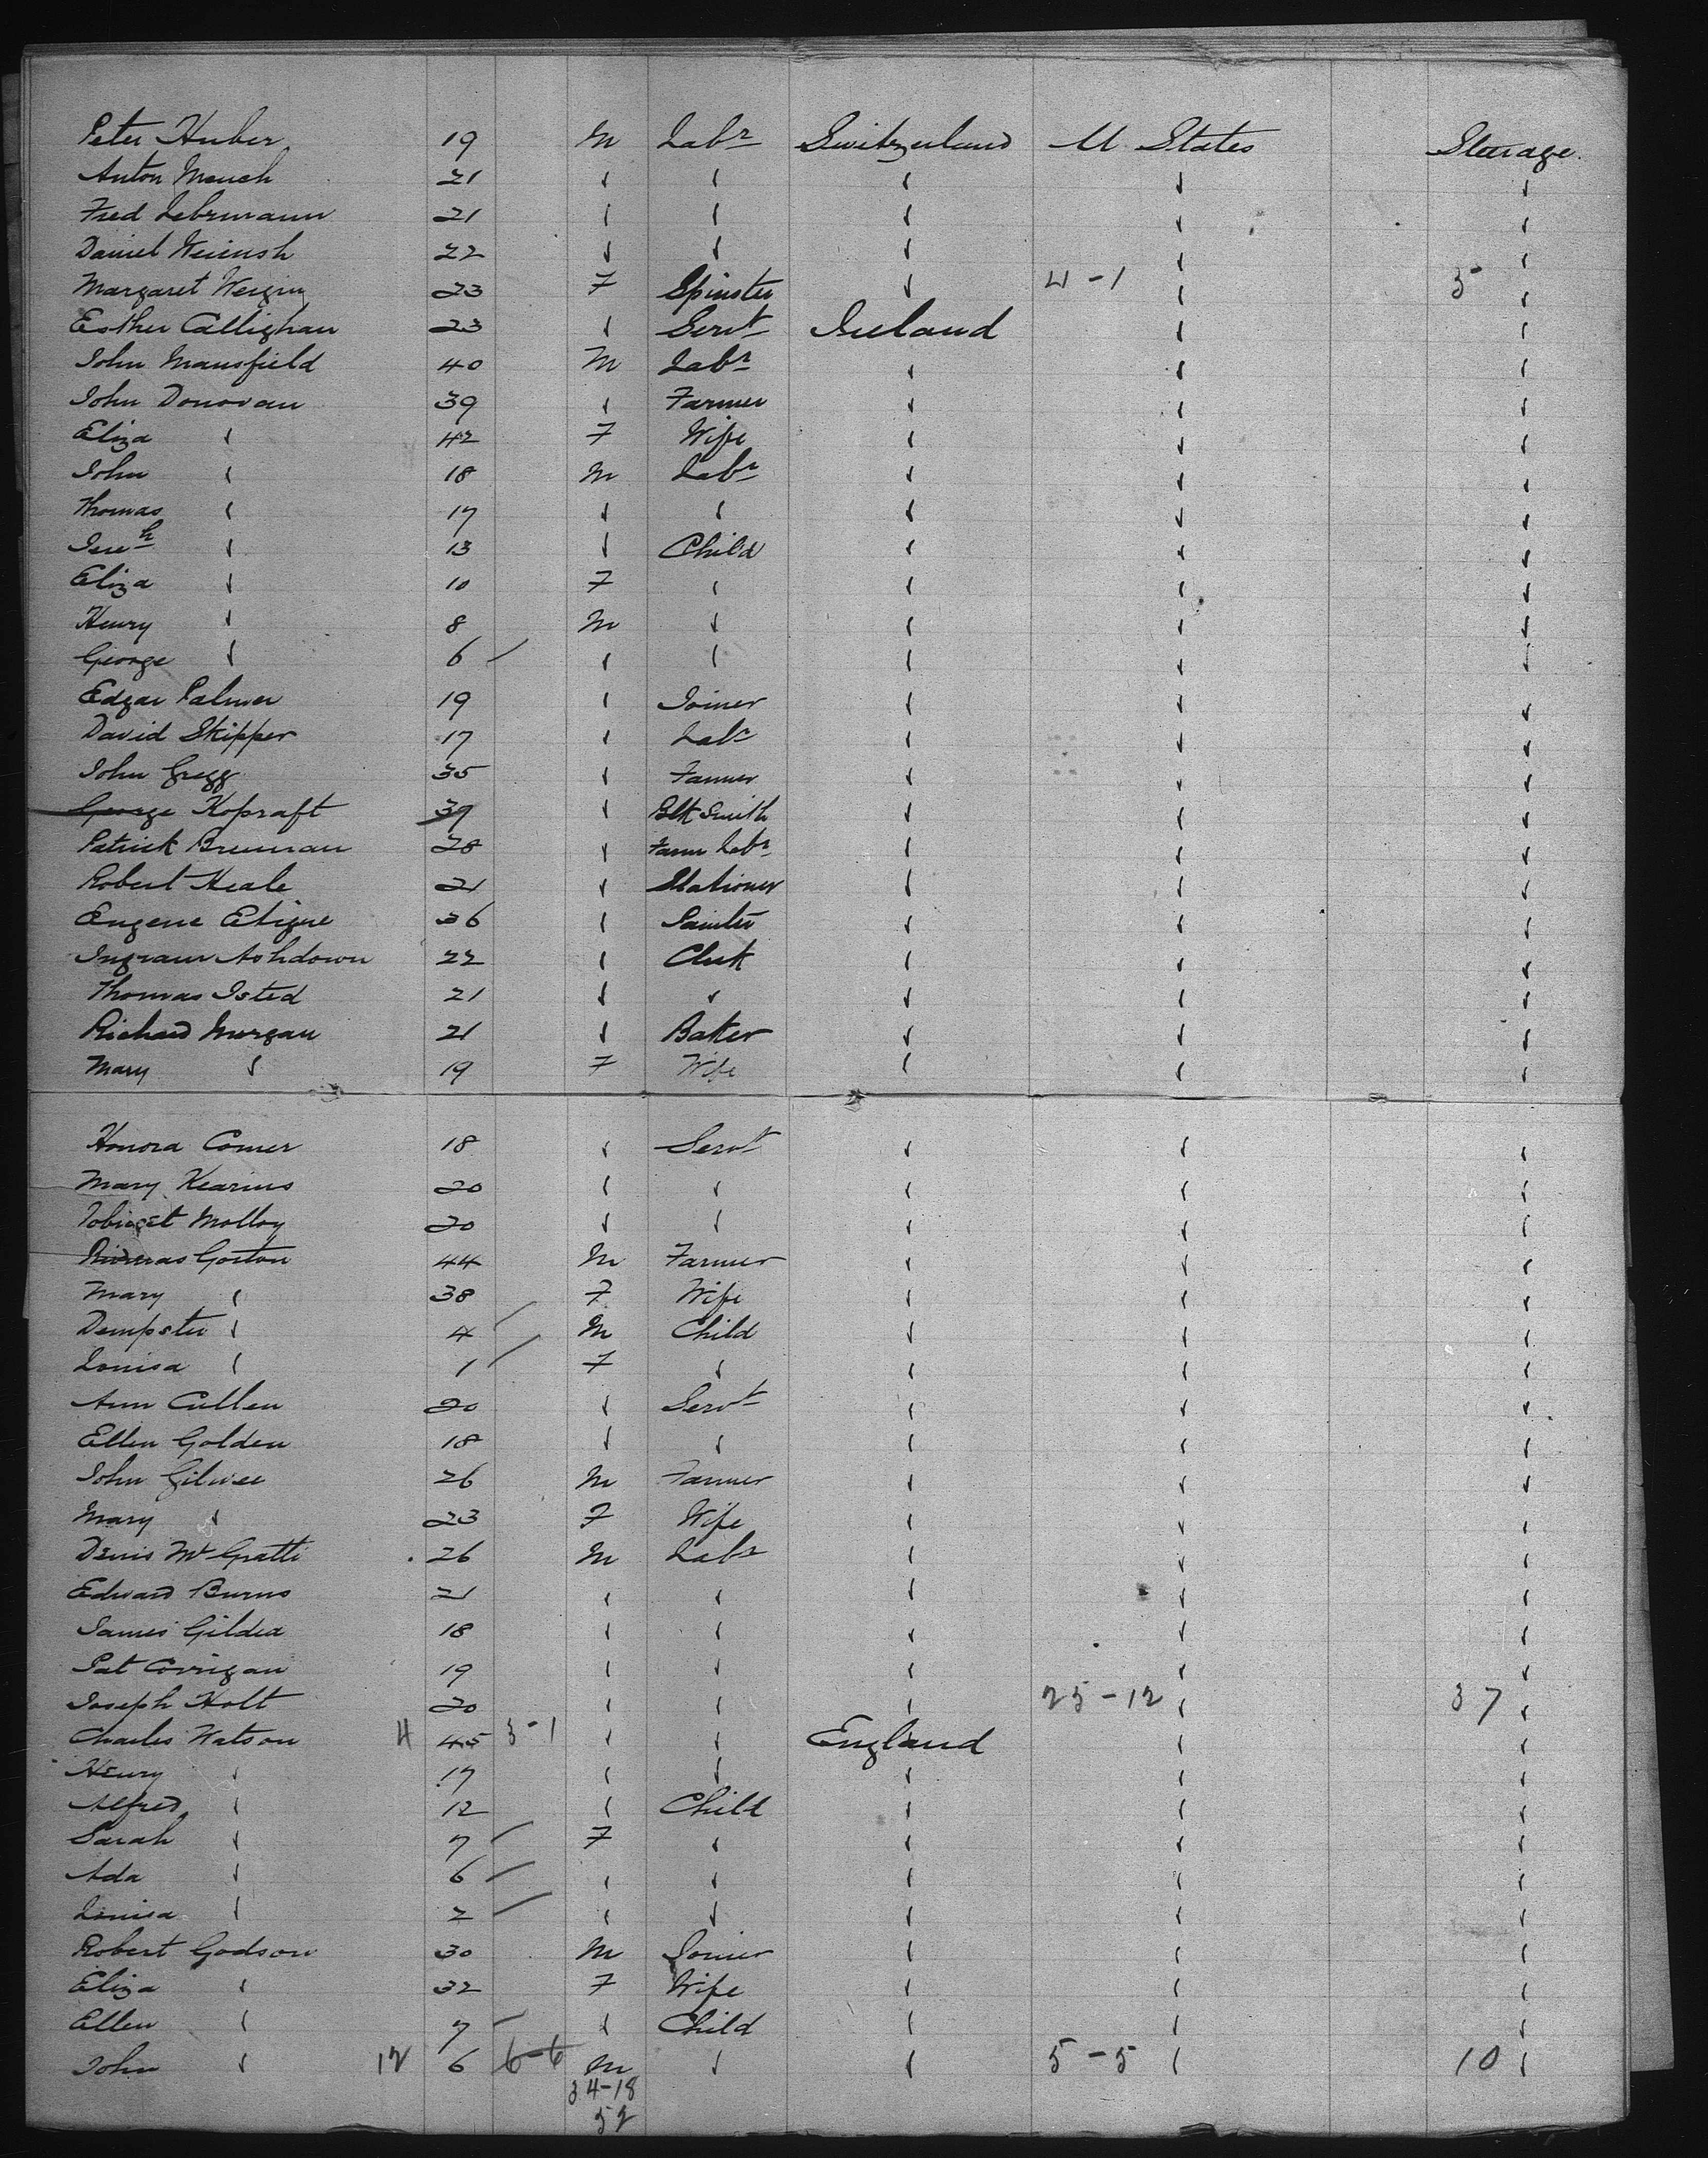 Peter Huber 19 M Labr Switzerland U States Steerage
Anton Mouch 21 " " " " "
Fred Lehrmann 21 " " " " "
Daniel 22 " " " " "
Margaret 23 F Spinster " 4-1 " 5 "
Esther Callighan 23 " Servt Ireland " "
John Mansfield 40 M Labr " " "
John Donovan 39 " Farmer " " "
Eliza " 42 F Wife " " "
John " 18 M Labr " " "
Thomas " 17 " " " " "
Jereh " 13 " Child " " "
Eliza " 10 F " " " "
Henry " 8 M " " " "
George " 6 / " " " " "
Edgar Palmer 19 " Joiner " " "
David Skipper 17 " Labr " " "
John Gregg 35 " Farmer " " "
George Kopraft 39 " Blk Smith " " "
Patrick Brennan 28 " Farm Labr " " "
Robert Heale 21 " Stationer " " "
Eugene Etigue 36 " Painter " " "
Ingram Ashdown 22 " Clerk " " "
Thomas Isted 21 " " " " "
Richard Morgan 21 " Baker " " "
Mary " 19 F Wife " " "
Honora Comer 18 " Servt " " "
Mary Kearins 20 " " " " "
Molloy 20 " " " " "
Gorton 44 M Farmer " " "
Mary " 38 F Wife " " "
Dempster " 4 / M Child " " "
Louisa " 1 / F " " " "
Ann Cullen 20 " Servt " " "
Ellen Golden 18 " " " " "
John Gilwee 26 M Farmer " " "
Mary " 23 F Wife " " "
Denis McGratti 26 M Labr " " "
Edward Burns 21 " " " " "
James Gildea 18 " " " " "
Pat Corrigan 19 " " " " "
Joseph Holt 20 " " " 25-12 " 37 "
Charles Watson 4 45 3-1 " " England " "
Henry " 17 " " " " "
Alfred " 12 " Child " " "
Sarah " 7 / F " " " "
Ada " 6 / " " " " "
Louisa " 2 / " " " " "
Robert Godson 30 M Joiner " " "
Eliza " 32 F Wife " " "
Ellen " 7 / " Child " " "
John " 12 6 6-6 M " " 5-5 " 10 "
34-18
52